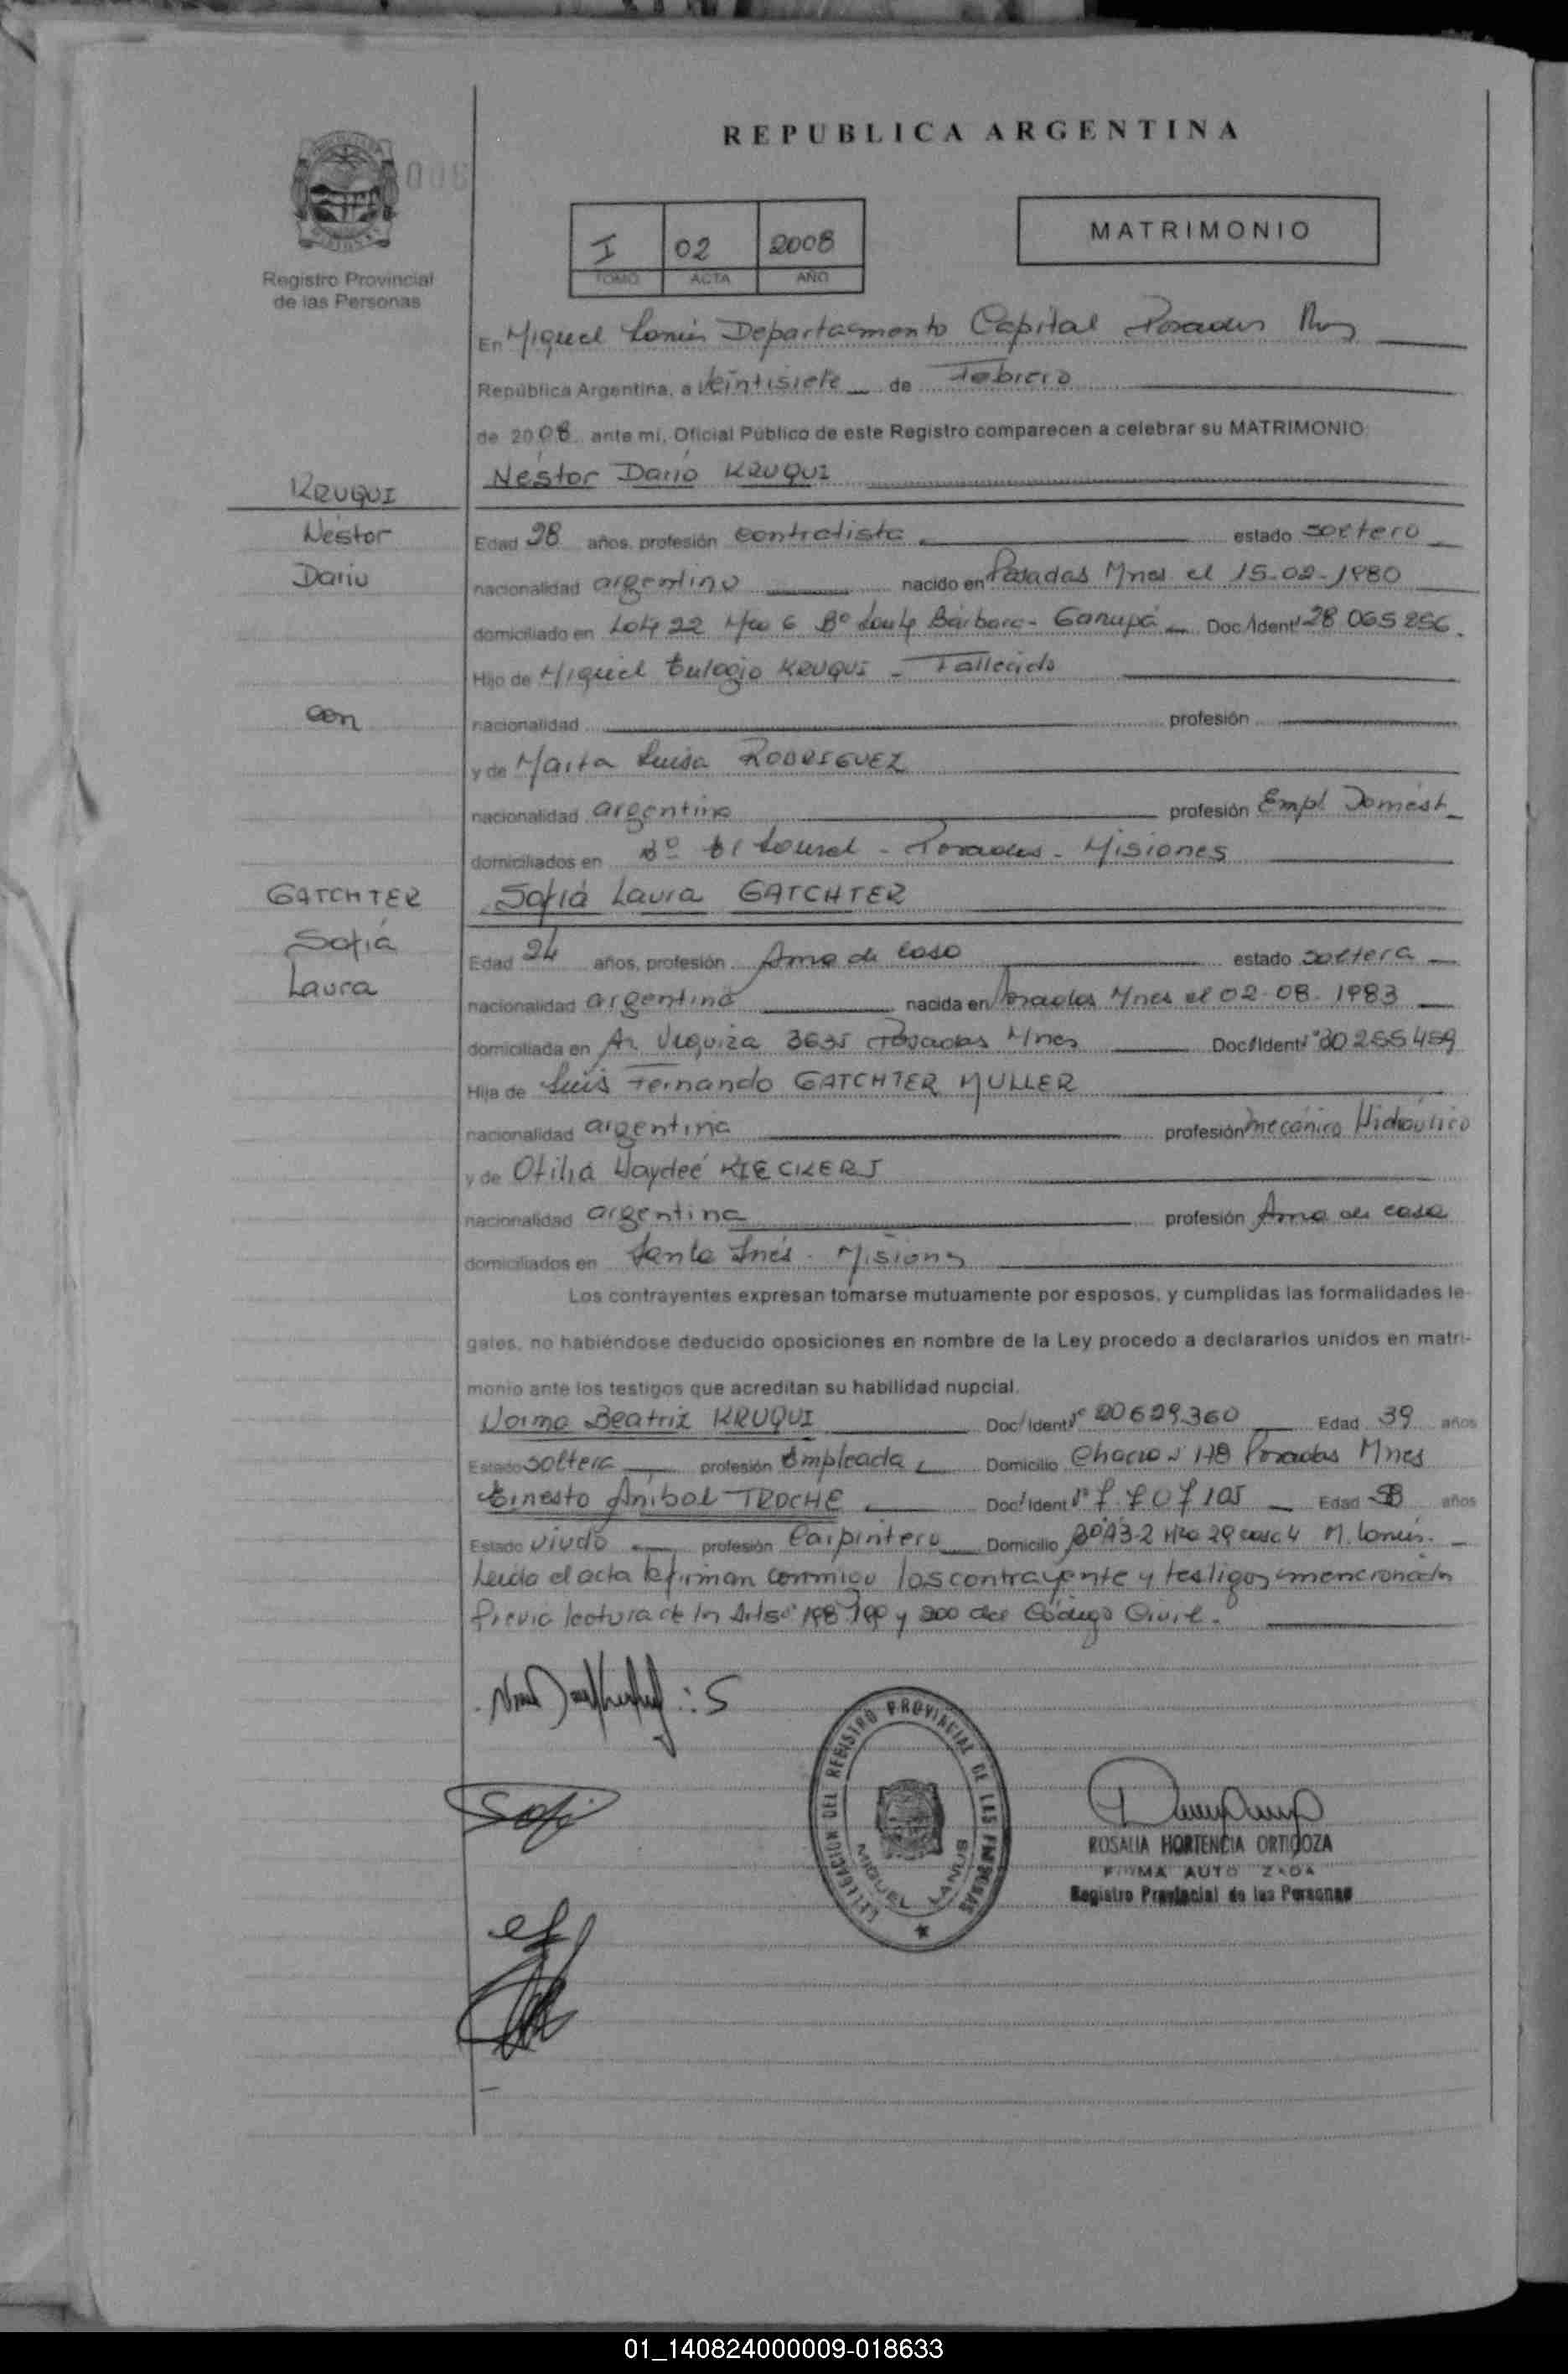 REPUBLICA ARGENTINA
Registro Provincial
de las Personas
I 02 2008
TOMO ACTA AÑO
MATRIMONIO
En Miguel Lanús Departamento Capital Posadas
República Argentina, a veintisiete de Febrero
de 2008 ante mí, Oficial Público de este Registro comparecen a celebrar su MATRIMONIO:
Néstor Darío KRUQUI
KRUQUI
Néstor
Darío
Edad 28 años, profesión contratista estado soltero
nacionalidad argentino nacido en Posadas Mnes el 15-02-1980
domiciliado en Lote 22 Mza 6 Bº Santa Bárbara - Garupá Doc/Ident Nº 28 065 256.
Hijo de Miguel Eulogio KRUQUI - Fallecido
con
nacionalidad profesión
y de Marta Luisa RODRIGUEZ
nacionalidad argentina profesión Empl Domést
domiciliados en Bº El Laurel - Posadas - Misiones
GATCHTER
Sofía
Laura
Sofía Laura GATCHTER
Edad 24 años, profesión Ama de casa estado soltera
nacionalidad argentina nacida en Posadas Mnes el 02-08-1983
domiciliada en Av. Urquiza 3635 Posadas Mnes Doc/Ident Nº 30 255 459
Hija de Luis Fernando GATCHTER MULLER
nacionalidad argentina profesión mecánico Hidráulico
y de Otilia Haydeé KIECKERS
nacionalidad argentina profesión Ama de casa
domiciliados en Santa Inés - Misiones
Los contrayentes expresan tomarse mutuamente por esposos, y cumplidas las formalidades le-
gales, no habiéndose deducido oposiciones en nombre de la Ley procedo a declararlos unidos en matri-
monio ante los testigos que acreditan su habilidad nupcial.
Norma Beatriz KRUQUI Doc/Ident Nº 20 629.360 Edad 39 años
Estado soltera profesión Empleada Domicilio Chacra Nº 178 Posadas Mnes
Ernesto Aníbal TROCHE Doc/Ident Nº 7.707.105 Edad 58 años
Estado viudo profesión Carpintero Domicilio Bº A3-2 Mza 29 casa 4 M. Lanús.
Leída el acta la firman conmigo los contrayente y testigos mencionados
Previa lectura de los Arts. 198 199 y 200 del Código Civil.
DELEGACION DEL REGISTRO PROVINCIAL DE LAS PERSONAS
MIGUEL LANUS
ROSALIA HORTENCIA ORTIGOZA
FIRMA AUTORIZADA
Registro Provincial de las Personas
01_140824000009-018633